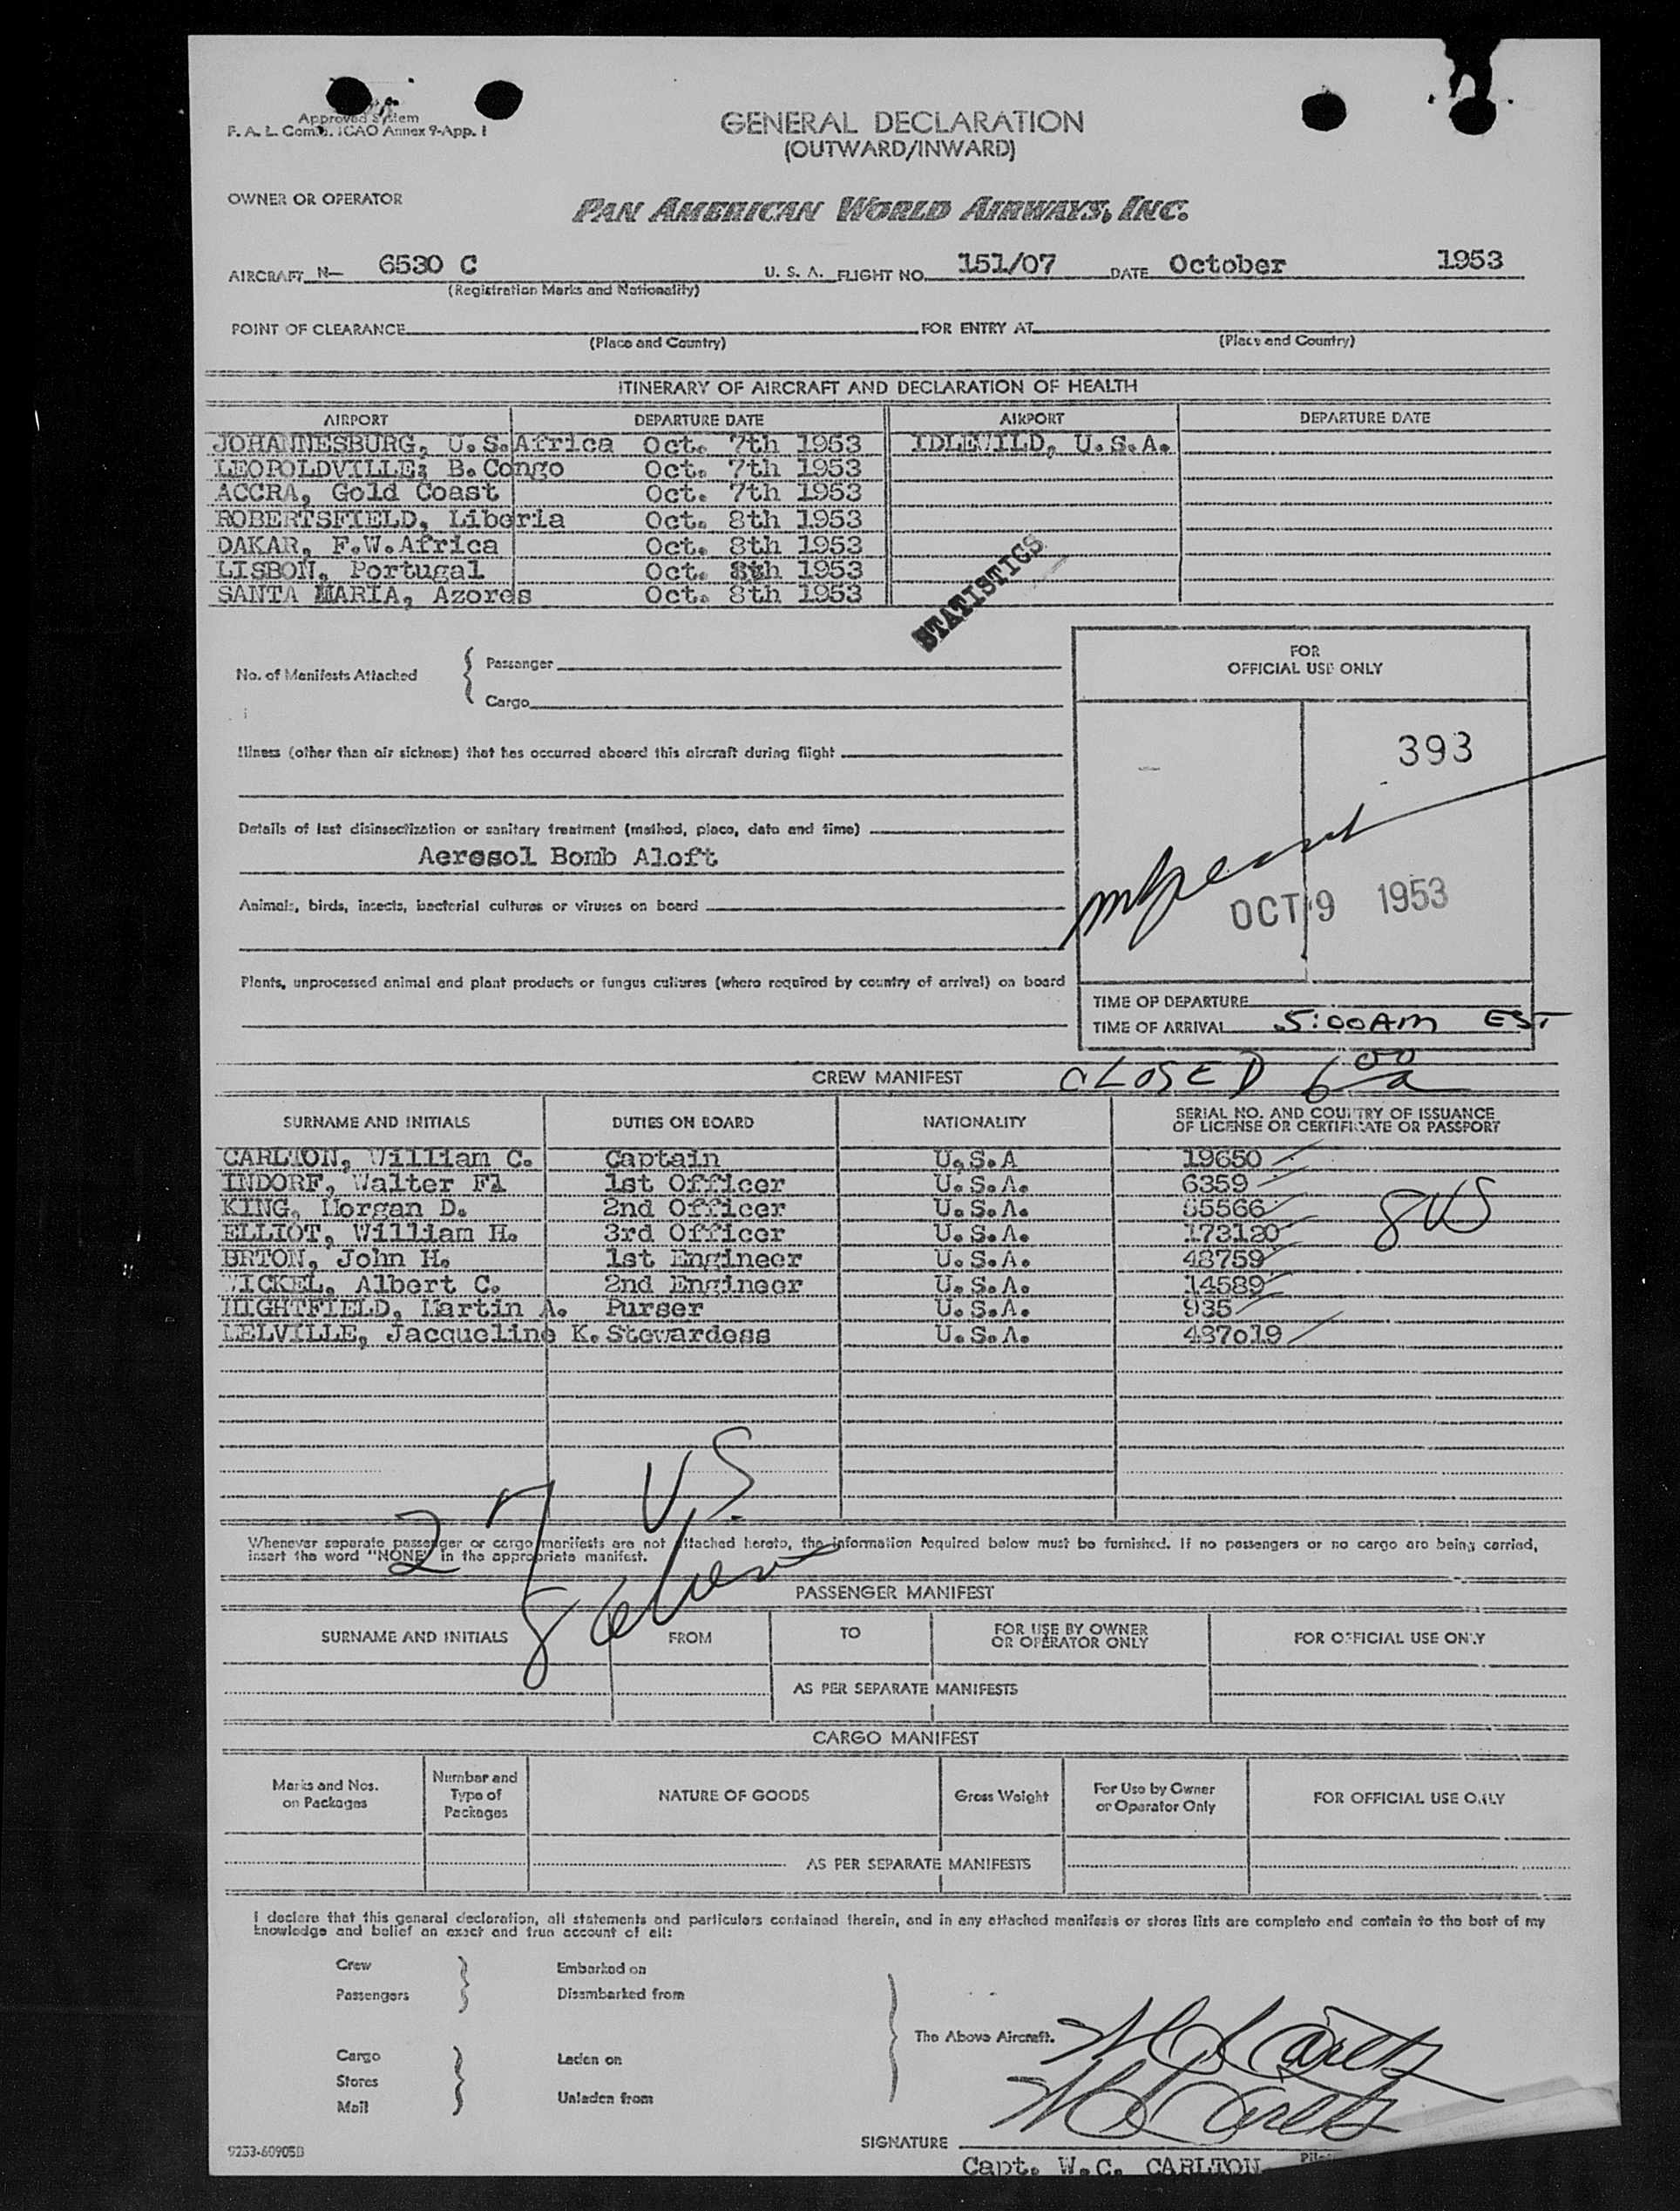 Approved System
F. A. L. Com. ICAO Annex 9-App. 1
GENERAL DECLARATION
(OUTWARD/INWARD)
OWNER OR OPERATOR
PAN AMERICAN WORLD AIRWAYS, INC.
AIRCRAFT N- 6530 C U. S. A. FLIGHT NO. 151/07 DATE October 1953
(Registration Marks and Nationality)
POINT OF CLEARANCE FOR ENTRY AT
(Place and Country) (Place and Country)
ITINERARY OF AIRCRAFT AND DECLARATION OF HEALTH
AIRPORT DEPARTURE DATE AIRPORT DEPARTURE DATE
JOHANNESBURG, U.S.Africa Oct. 7th 1953 IDLEWILD, U.S.A.
LEOPOLDVILLE; B.Congo Oct. 7th 1953
ACCRA, Gold Coast Oct. 7th 1953
ROBERTSFIELD, Liberia Oct. 8th 1953
DAKAR, F.W.Africa Oct. 8th 1953
LISBON, Portugal Oct. 8th 1953
SANTA MARIA, Azores Oct. 8th 1953
STATISTICS
No. of Manifests Attached
Passenger
Cargo
FOR
OFFICIAL USE ONLY
393
Illness (other than air sickness) that has occurred aboard this aircraft during flight
Details of last disinsectization or sanitary treatment (method, place, date and time)
Aerosol Bomb Aloft
Animals, birds, insects, bacterial cultures or viruses on board
OCT 9 1953
Plants, unprocessed animal and plant products or fungus cultures (where required by country of arrival) on board
TIME OF DEPARTURE
TIME OF ARRIVAL 5:00AM EST
CREW MANIFEST CLOSED 6 00 a
SURNAME AND INITIALS DUTIES ON BOARD NATIONALITY SERIAL NO. AND COUNTRY OF ISSUANCE
OF LICENSE OR CERTIFICATE OR PASSPORT
CARLTON, William C. Captain U.S.A 19650
INDORF, Walter Fl 1st Officer U.S.A. 6359
KING, Morgan D. 2nd Officer U.S.A. 65566
ELLIOT, William H. 3rd Officer U.S.A. 173120
BRTON, John H. 1st Engineer U.S.A. 48759
WICKEL, Albert C. 2nd Engineer U.S.A. 14589
HIGHTFIELD, Martin A. Purser U.S.A. 935
MELVILLE, Jacqueline K. Stewardess U.S.A. 487o19
8 US
27 U.S.
8 alien
Whenever separate passenger or cargo manifests are not attached hereto, the information required below must be furnished. If no passengers or no cargo are being carried,
insert the word "NONE" in the appropriate manifest.
PASSENGER MANIFEST
SURNAME AND INITIALS FROM TO FOR USE BY OWNER
OR OPERATOR ONLY FOR OFFICIAL USE ONLY
AS PER SEPARATE MANIFESTS
CARGO MANIFEST
Marks and Nos.
on Packages Number and
Type of
Packages NATURE OF GOODS Gross Weight For Use by Owner
or Operator Only FOR OFFICIAL USE ONLY
AS PER SEPARATE MANIFESTS
I declare that this general declaration, all statements and particulars contained therein, and in any attached manifests or stores lists are complete and contain to the best of my
knowledge and belief an exact and true account of all:
Crew Embarked on
Passengers Disembarked from
The Above Aircraft.
Cargo Laden on
Stores
Mail Unladen from
W C Carlton
W C Carlton
9253-60905B
SIGNATURE
Capt. W.C. CARLTON